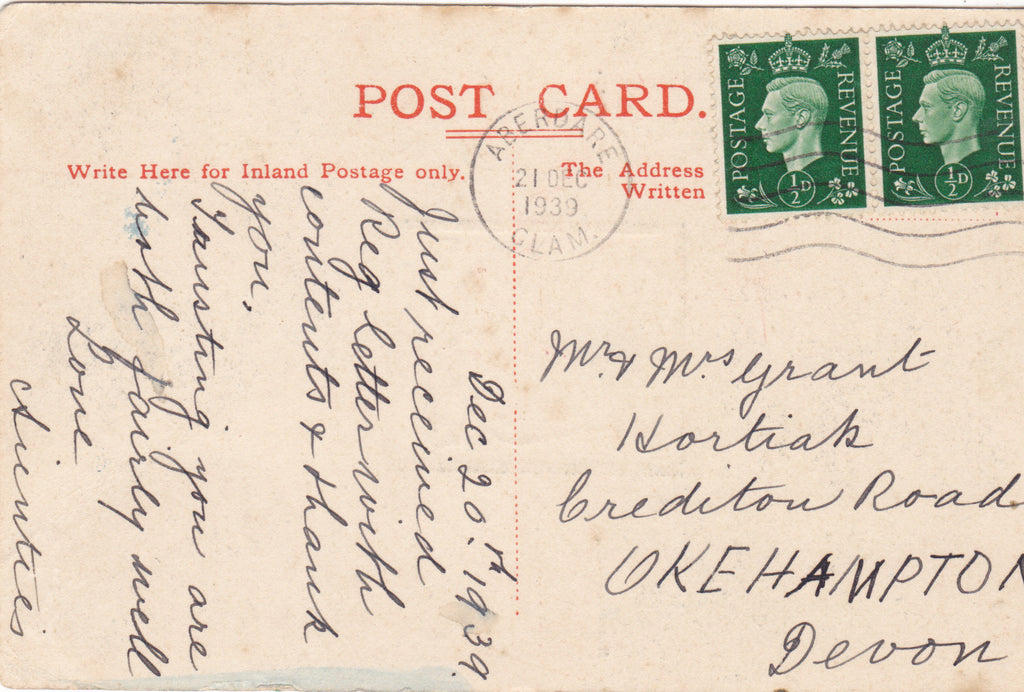 POST CARD.
Write Here for Inland Postage only.
The Address
Written
POSTAGE REVENUE
½D
POSTAGE REVENUE
½D
ABERDARE
21 DEC
1939
GLAM.
Dec 20.th 1939
Just received
Reg letter with
contents & thank
you.
Tansting you are
both fairly well
Love
Aunties
Mr & Mrs Grant
Hortiak
Crediton Road
OKEHAMPTON
Devon